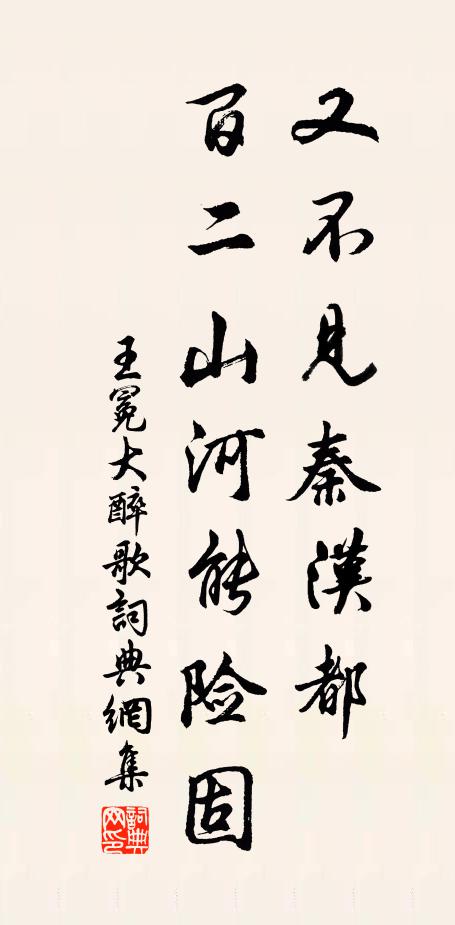 又不見秦漢都
百二山河能險固
王冕大醉歌詞典網集
詞典網印